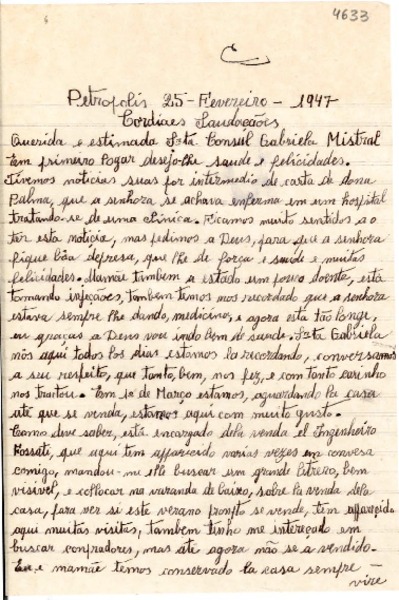 4633
Petropolis 25-Fevereiro-1947
Cordiaes Saudações
Querida e estimada Snta Consûl Gabriela Mistral
em primeiro logar desejo-lhe saude e felicidades.
Tivemos noticias suas por intermedio de carta de dona
Palma, que a senhora se achava enferma em um hospital
tratando-se de uma clinica. Ficamos muito sentidos ao
ter esta noticia, mas pedimos a Deus, para que a senhora
fique bôa depresa, que lhe de força e saude e muitas
felicidades. Mamãe timbem a estado um pouco doente, está
tomando injeçoes, tambem temos nos recordado que a senhora
estava sempre lhe dando, medicina, e agora esta tão longe,
eu graças a Deus vou indo bem de saude. Snta Gabriela
nós aqui todos los dias estamos la recordando, conversamos
a seu respeito, que tanto, bem, nos fez, e com tanto carinho
nos tratou. Em 1º de Março estamos, aguardando la casa
até que se venda, estamos aqui com muito gusto.
Como deve saber, está encargado dela venda el Ingenheiro
Rossati, que aqui tem apparecido varias vezes em conversa
comigo, mandou-me elle buscar um grande letrero, bem
visivel, e collocar na varanda de baixo, sobre la venda dela
casa, para ver si este verano pronto se vende, tem apparecido
aqui muitas visitas, tambem tenho me intereçado em
buscar compradores, mas até agora não se a vendido.
Eu, e mamãe temos conservado la casa sempre —
vire